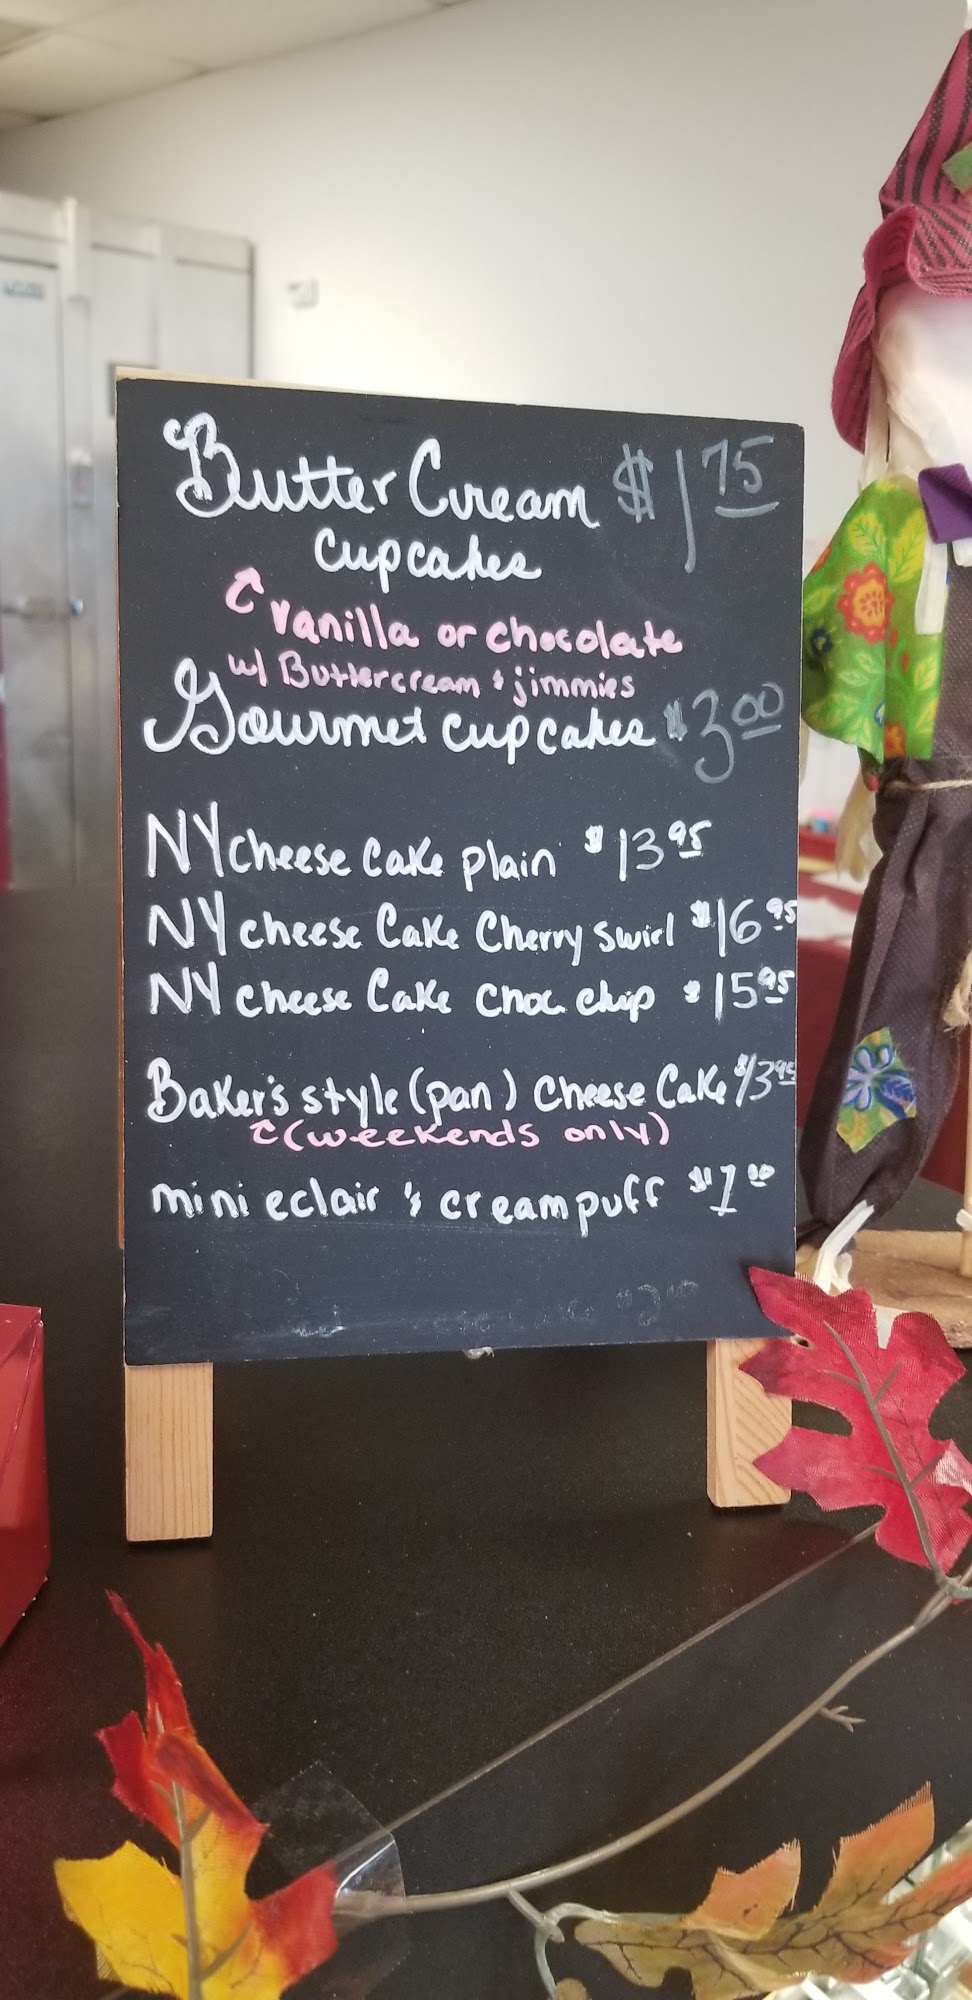 Butter Cream $1 75
cupcakes
vanilla or chocolate
w/ Buttercream & jimmies
Gourmet cupcakes $3 00
NY cheese Cake plain $13 95
NY cheese Cake Cherry swirl $16 95
NY cheese Cake choc chip $15 95
Baker's style (pan) Cheese Cake $13 95
(weekends only)
mini eclair & creampuff $1 00